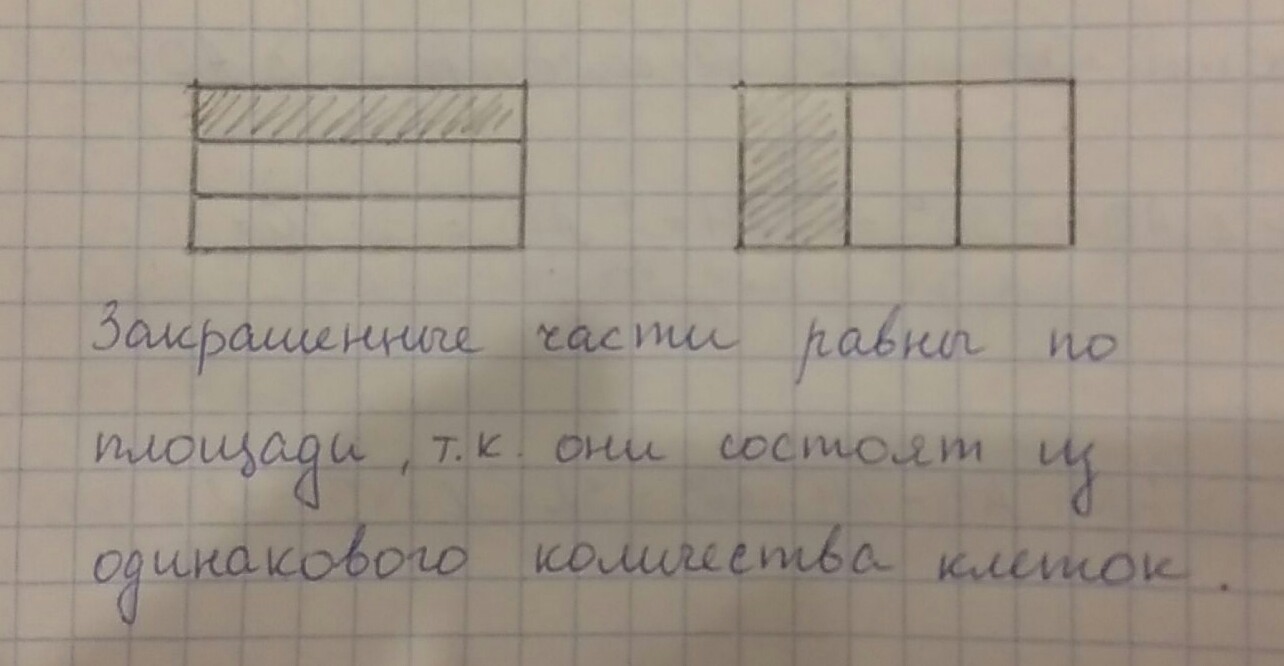 Закрашенные части равны по
площади, т.к. они состоят из
одинакового количества клеток.